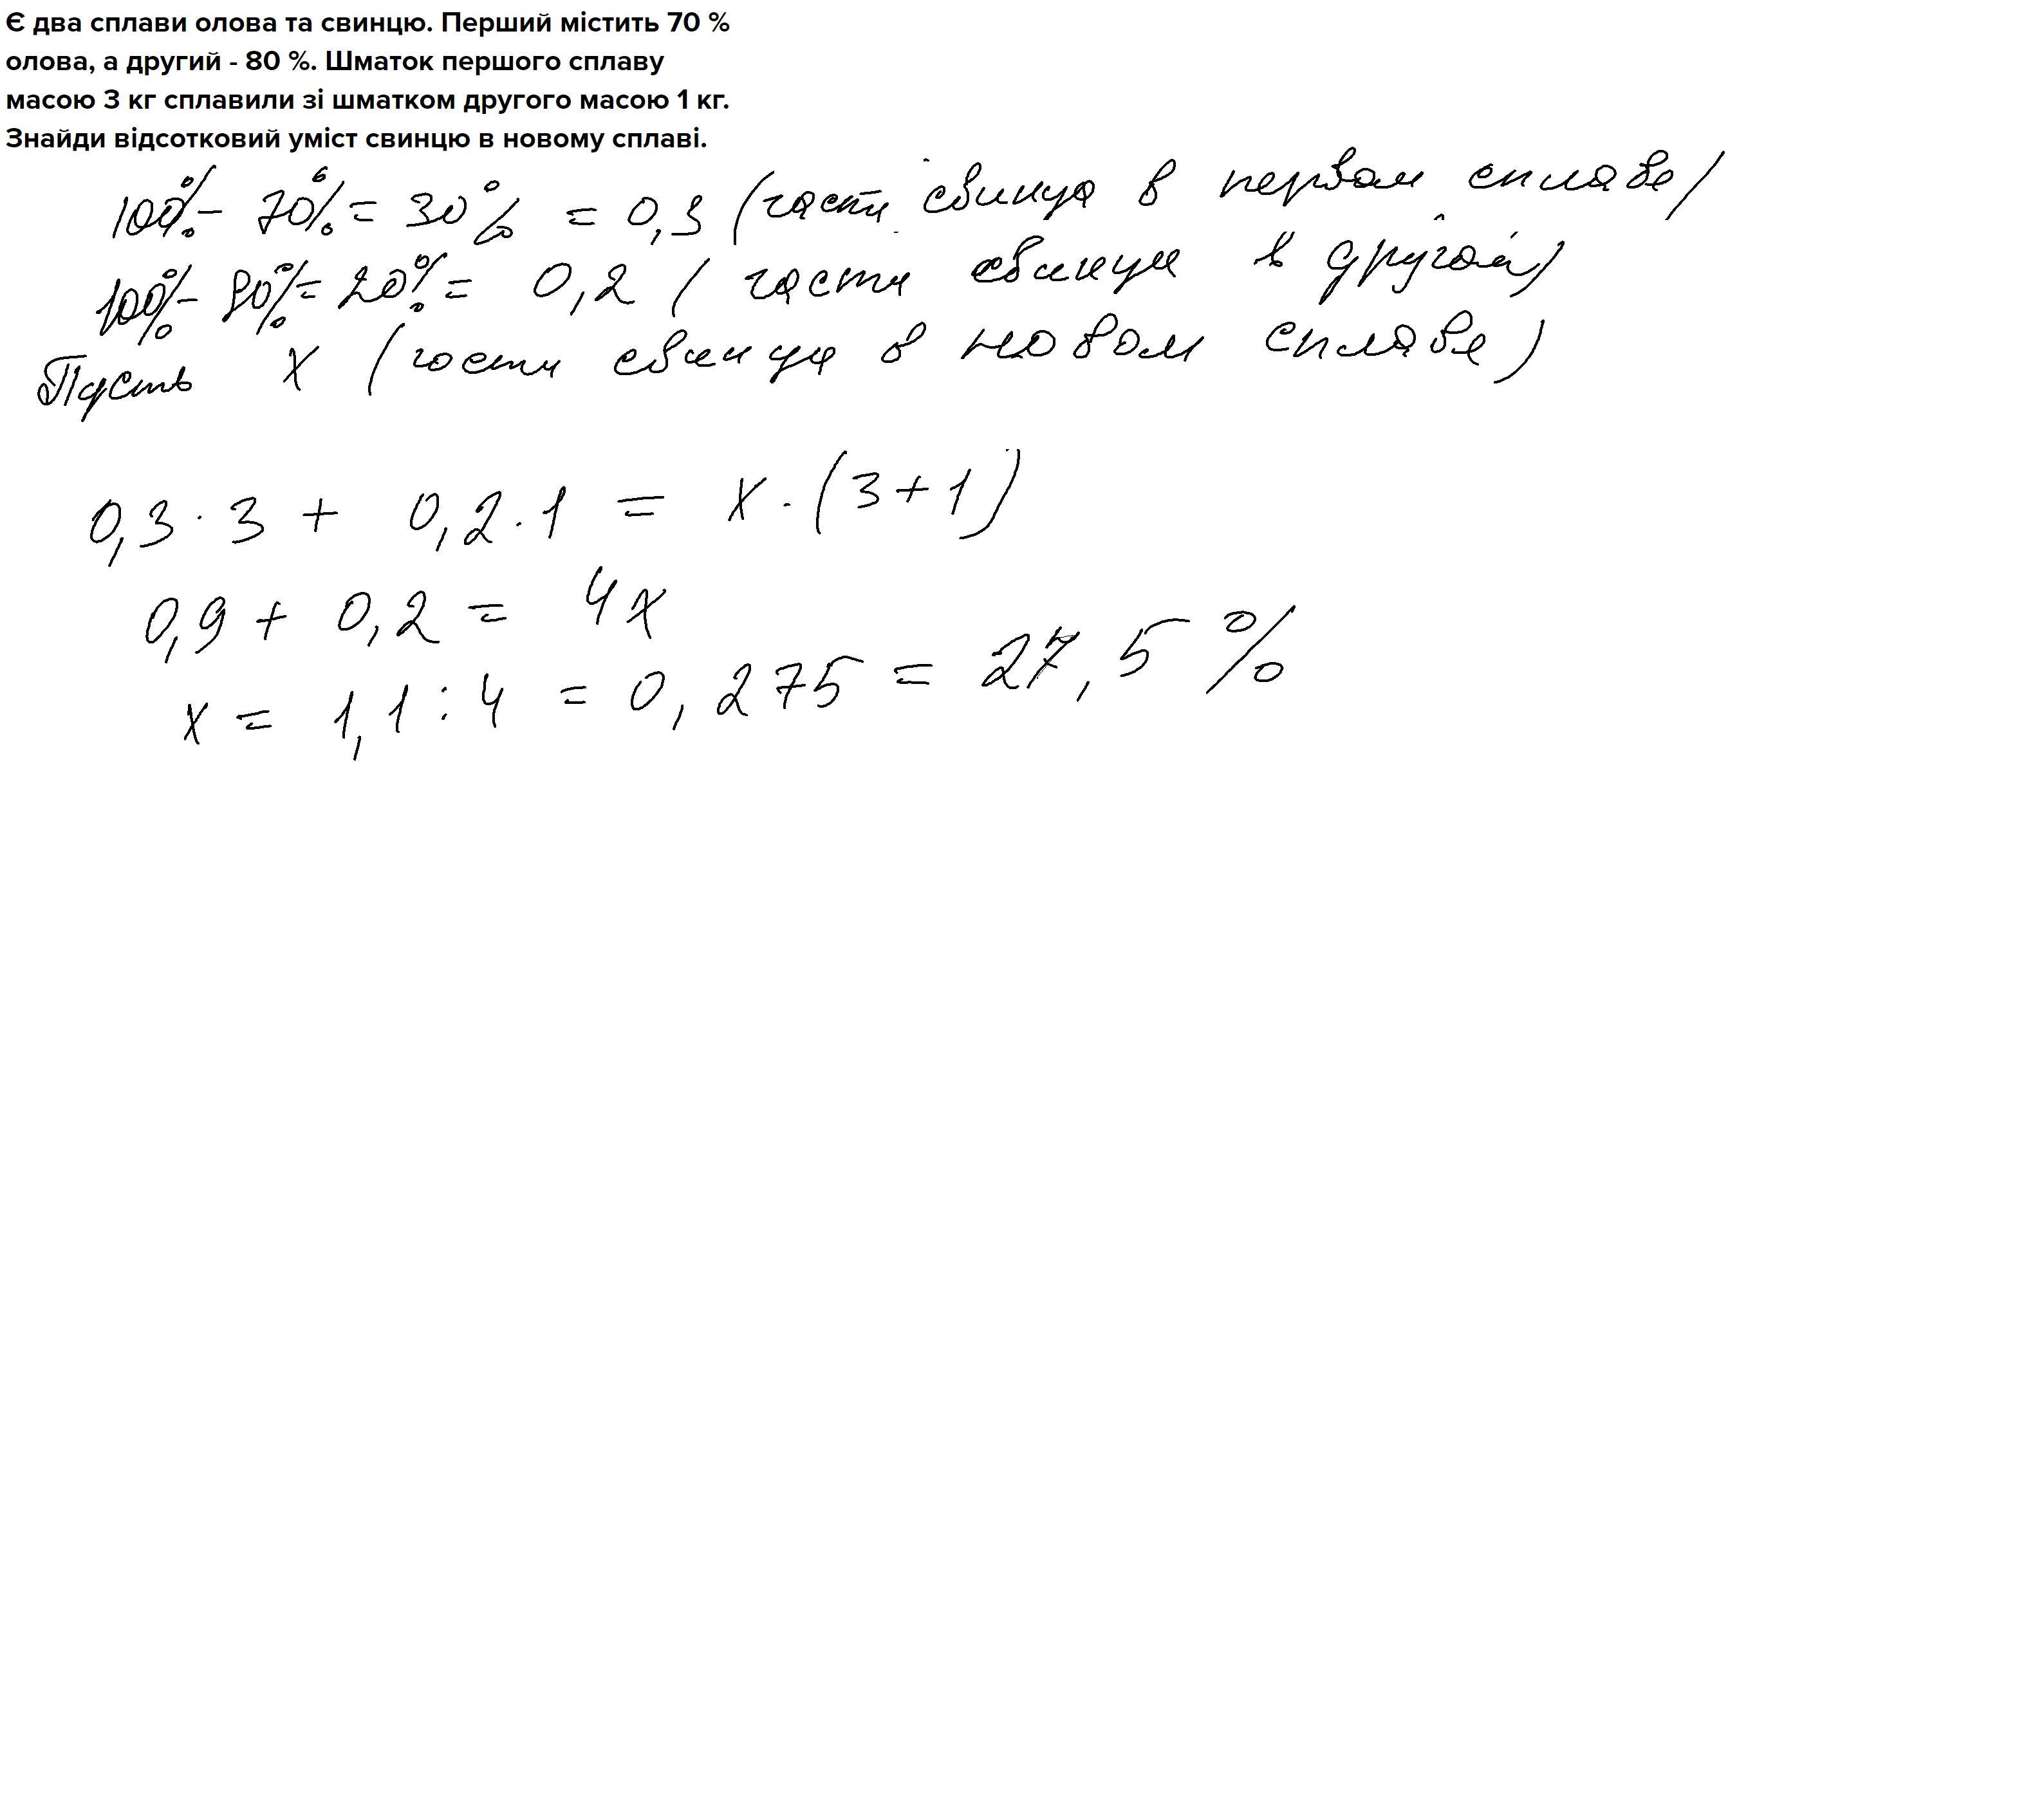 Є два сплави олова та свинцю. Перший містить 70 %
олова, а другий - 80 %. Шматок першого сплаву
масою 3 кг сплавили зі шматком другого масою 1 кг.
Знайди відсотковий уміст свинцю в новому сплаві.
100% - 70% = 30% = 0,3 (части свинца в первом сплаве)
100% - 80% = 20% = 0,2 (части свинца в другом)
Пусть x (части свинца в новом сплаве)
0,3 · 3 + 0,2 · 1 = x · (3 + 1)
0,9 + 0,2 = 4x
x = 1,1 : 4 = 0,275 = 27,5 %